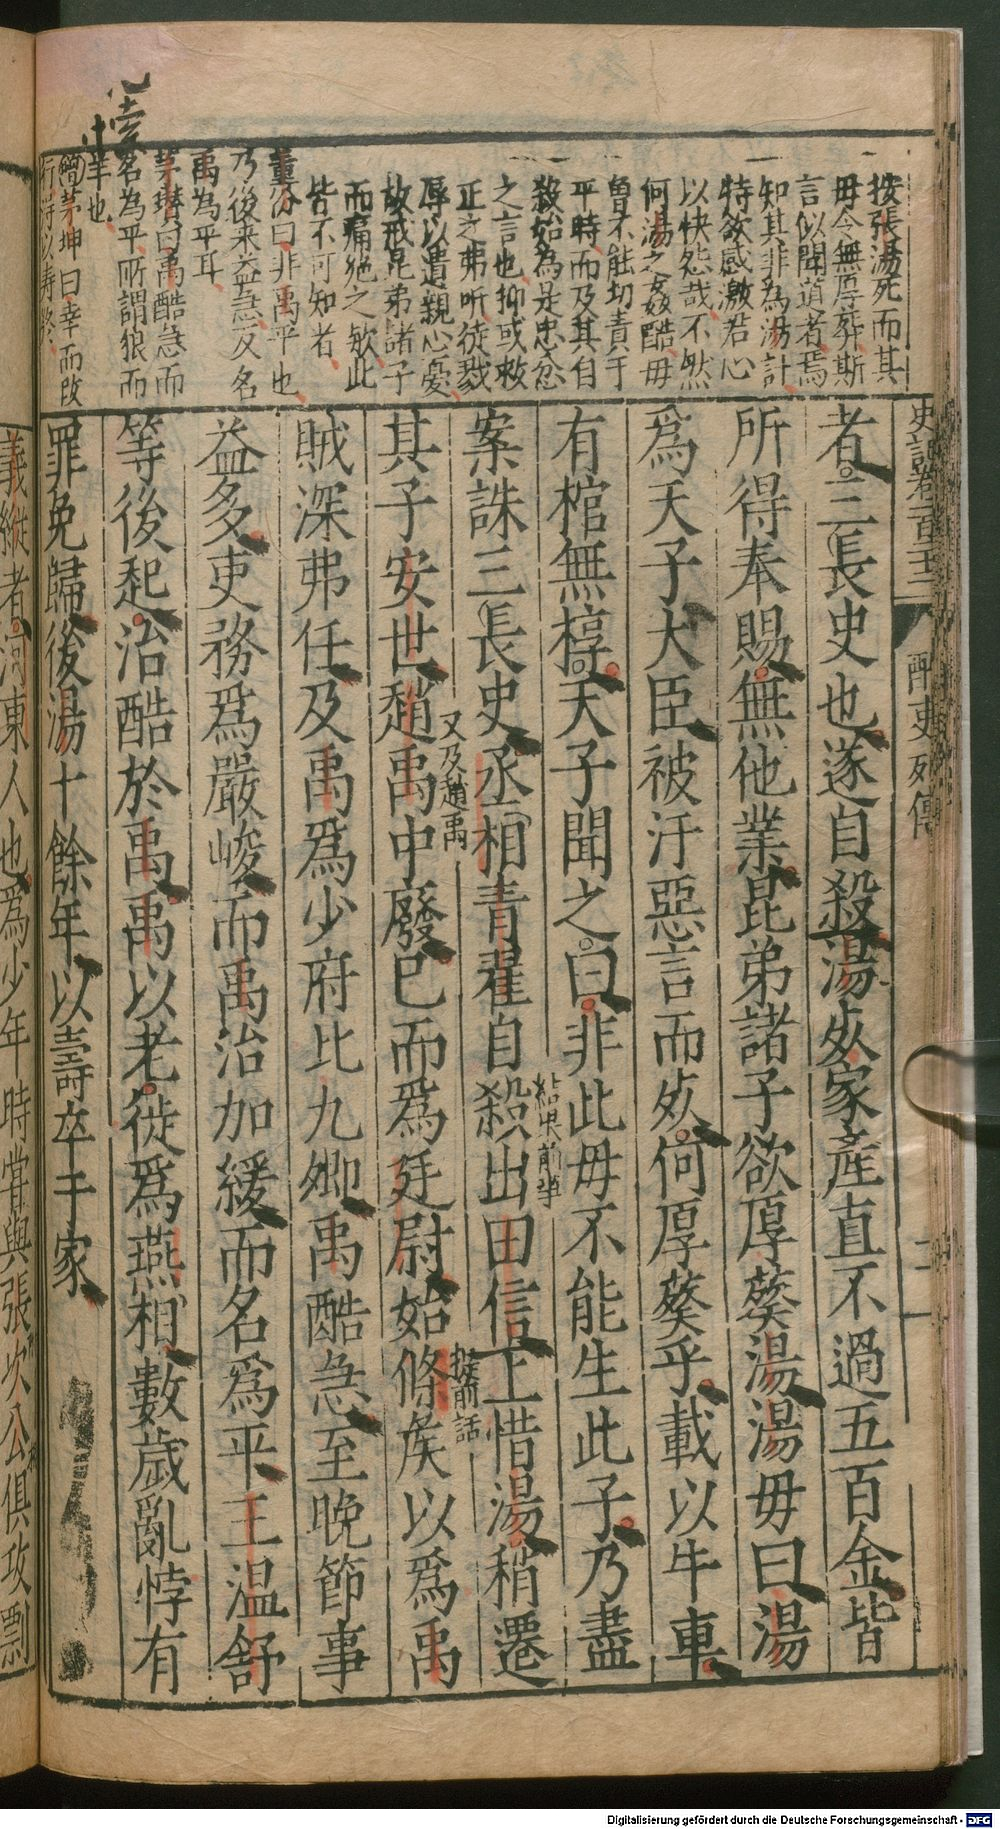 史記卷一百二十二
酷吏列傳
二
按張湯死而其
毋令無厚葬斯
言似聞道者焉
知其非為湯計
特欲感激君心
以快怨哉不然
何湯之姦酷毋
曾不能切責于
平時而及其自
殺始為是忠忿
之言也抑或救
正之弗听徒戮
辱以遺親心憂
故戒昆弟諸子
而痛絕之欤此
皆不可知者
董份曰非禹平也
乃後来益急反名
禹為平耳
茅瓚曰禹酷急而
名為平所謂狼而
羊也
茅坤曰幸而改
行得以壽終
者三長史也遂自殺湯死家產直不過五百金皆
所得奉賜無他業昆弟諸子欲厚葬湯湯毋曰湯
爲天子大臣被汙惡言而死何厚葬乎載以牛車
有棺無椁天子聞之曰非此毋不能生此子乃盡
案誅三長史丞相青翟自殺出田信上惜湯稍遷
結果前華
其子安世趙禹中廢巳而爲廷尉始條矦以爲禹
又及趙禹
接前話
賊深弗任及禹爲少府比九卿禹酷急至晚節事
益多吏務爲嚴峻而禹治加緩而名爲平王温舒
等後起治酷於禹禹以老徙爲燕相數歲亂悖有
罪免歸後湯十餘年以壽卒于家
義縱者河東人也爲少年時嘗與張次公俱攻剽
Digitalisierung gefördert durch die Deutsche Forschungsgemeinschaft - DFG